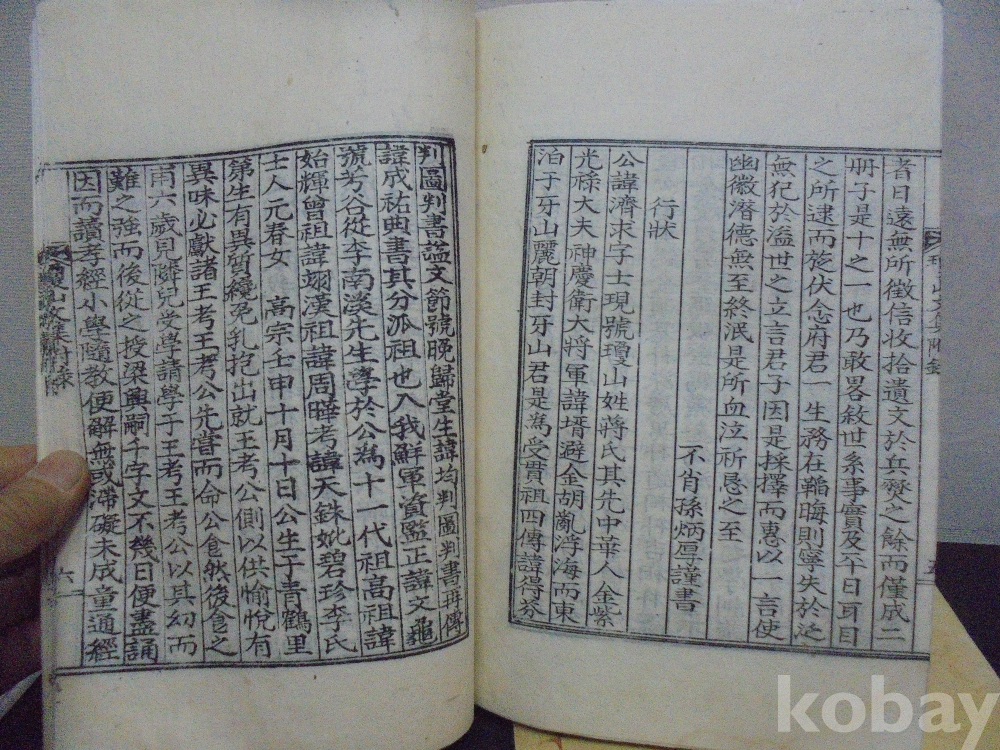 者日遠無所徵信收拾遺文於兵燹之餘而僅成二
冊子是十之一也乃敢畧敘世系事實及平日耳目
之所逮而旋伏念府君一生務在韜晦則寧失於泛
無犯於溢世之立言君子因是採擇而惠以一言使
幽徽潛德無至終泯是所血泣祈恳之至
不肖孫炳 謹書
行狀
公諱濟求字士現號瓊山姓蔣氏其先中華人金紫
光祿大夫神慶衛大將軍諱壻避金胡亂浮海而東
泊于牙山麗朝封牙山君是爲受貫祖四傳諱得芬
判圖判書謚文節號晚歸堂生諱均判圖判書再傳
諱成祐典書其分派祖也入我鮮軍資監正諱文
號芳谷從李南溪先生學於公爲十一代祖高祖諱
始輝曾祖諱翊漢祖諱周曄考諱天銖妣碧珍李氏
士人元春女 高宗壬申十月十日公生于青鶴里
第生有異質纔免乳抱出就王考公側以供愉悅有
異味必獻諸王考王考公先嘗而命公食然後食之
甫六歲見隣兒受學請學于王考王考公以其幼而
難之强而後從之授梁興嗣千字文不幾日便盡誦
因而讀孝經小學隨教便解無或滯礙未成童通經
瓊山文集附錄
六
kobay